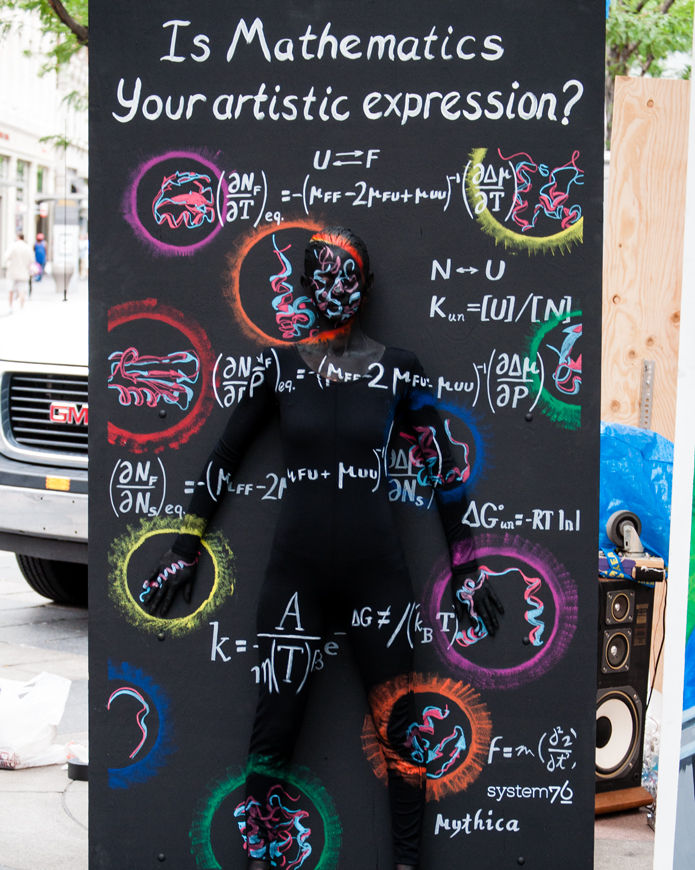 Is Mathematics
Your artistic expression?
U ⇄ F
(∂N_F/∂T)_eq. = -(μ_FF - 2μ_FU + μ_UU)^-1 (∂Δμ/∂T)
N ↔ U
K_un = [U]/[N]
= -(μ_FF - 2 μ_FU + μ_UU)^-1 (∂Δμ/∂P)
(∂N_F/∂N_S)_eq. = -(μ_FF - 2μ_FU + μ_UU)^-1 (∂Δμ/∂N_S)
ΔG°_un = -RT ln
GM
k = A/ e^-
ΔG ≠ /(k_B T)
f = m (∂²
system76
Mythica